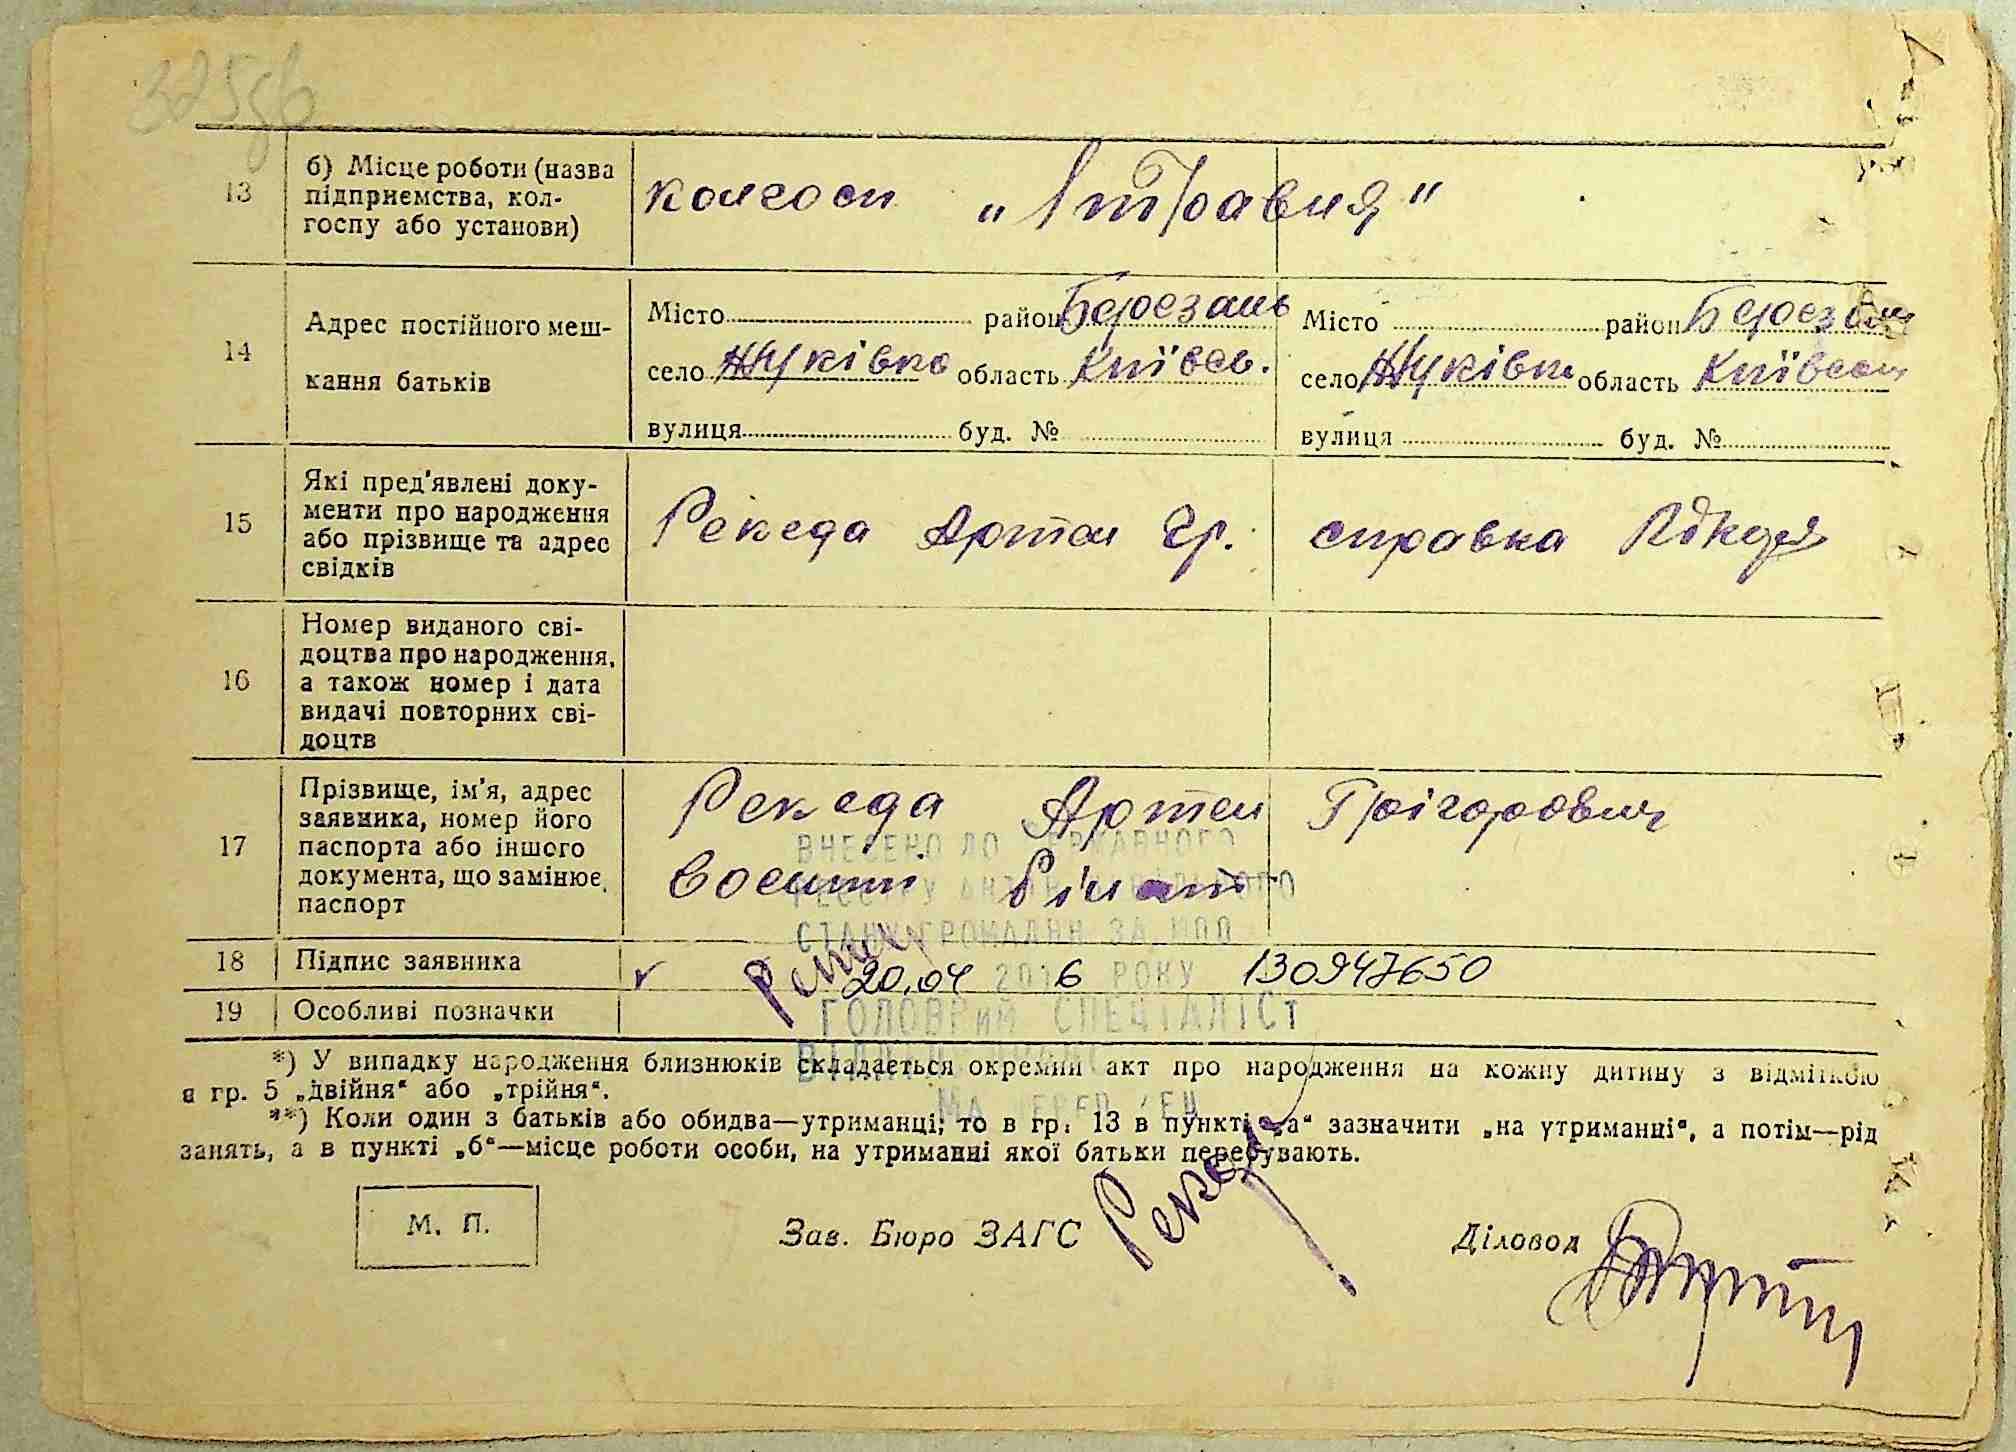 13 б) Місце роботи (назва підприємства, колгоспу або установи) колгосп „1 травня"
14 Адрес постійного мешкання батьків
Місто район Березань Місто район Березань
село Жуківка область Київсь. село Жуківка область Київськ
вулиця буд. № вулиця буд. №
15 Які пред'явлені документи про народження або прізвище та адрес свідків Рекеда Артем Гр. справка
16 Номер виданого свідоцтва про народження, а також номер і дата видачі повторних свідоцтв
17 Прізвище, ім'я, адрес заявника, номер його паспорта або іншого документа, що замінює паспорт
Рекеда Артем Грігорович
ВНЕСЕНО ДО ДЕРЖАВНОГО
РЕЄСТРУ АКТІВ ЦИВІЛЬНОГО
СТАНУ ГРОМАДЯН ЗА №
18 Підпис заявника Рекеда 20.04 2016 РОКУ 130947650
19 Особливі позначки
ГОЛОВНИЙ СПЕЦІАЛІСТ
*) У випадку народження близнюків складається окремий акт про народження на кожну дитину з відміткою
в гр. 5 „двійня“ або „трійня“.
**) Коли один з батьків або обидва—утриманці; то в гр. 13 в пункті „а“ зазначити „на утриманні“, а потім—рід
занять, а в пункті „б“—місце роботи особи, на утриманні якої батьки перебувають.
М. П. Зав. Бюро ЗАГС Рекеда Діловод